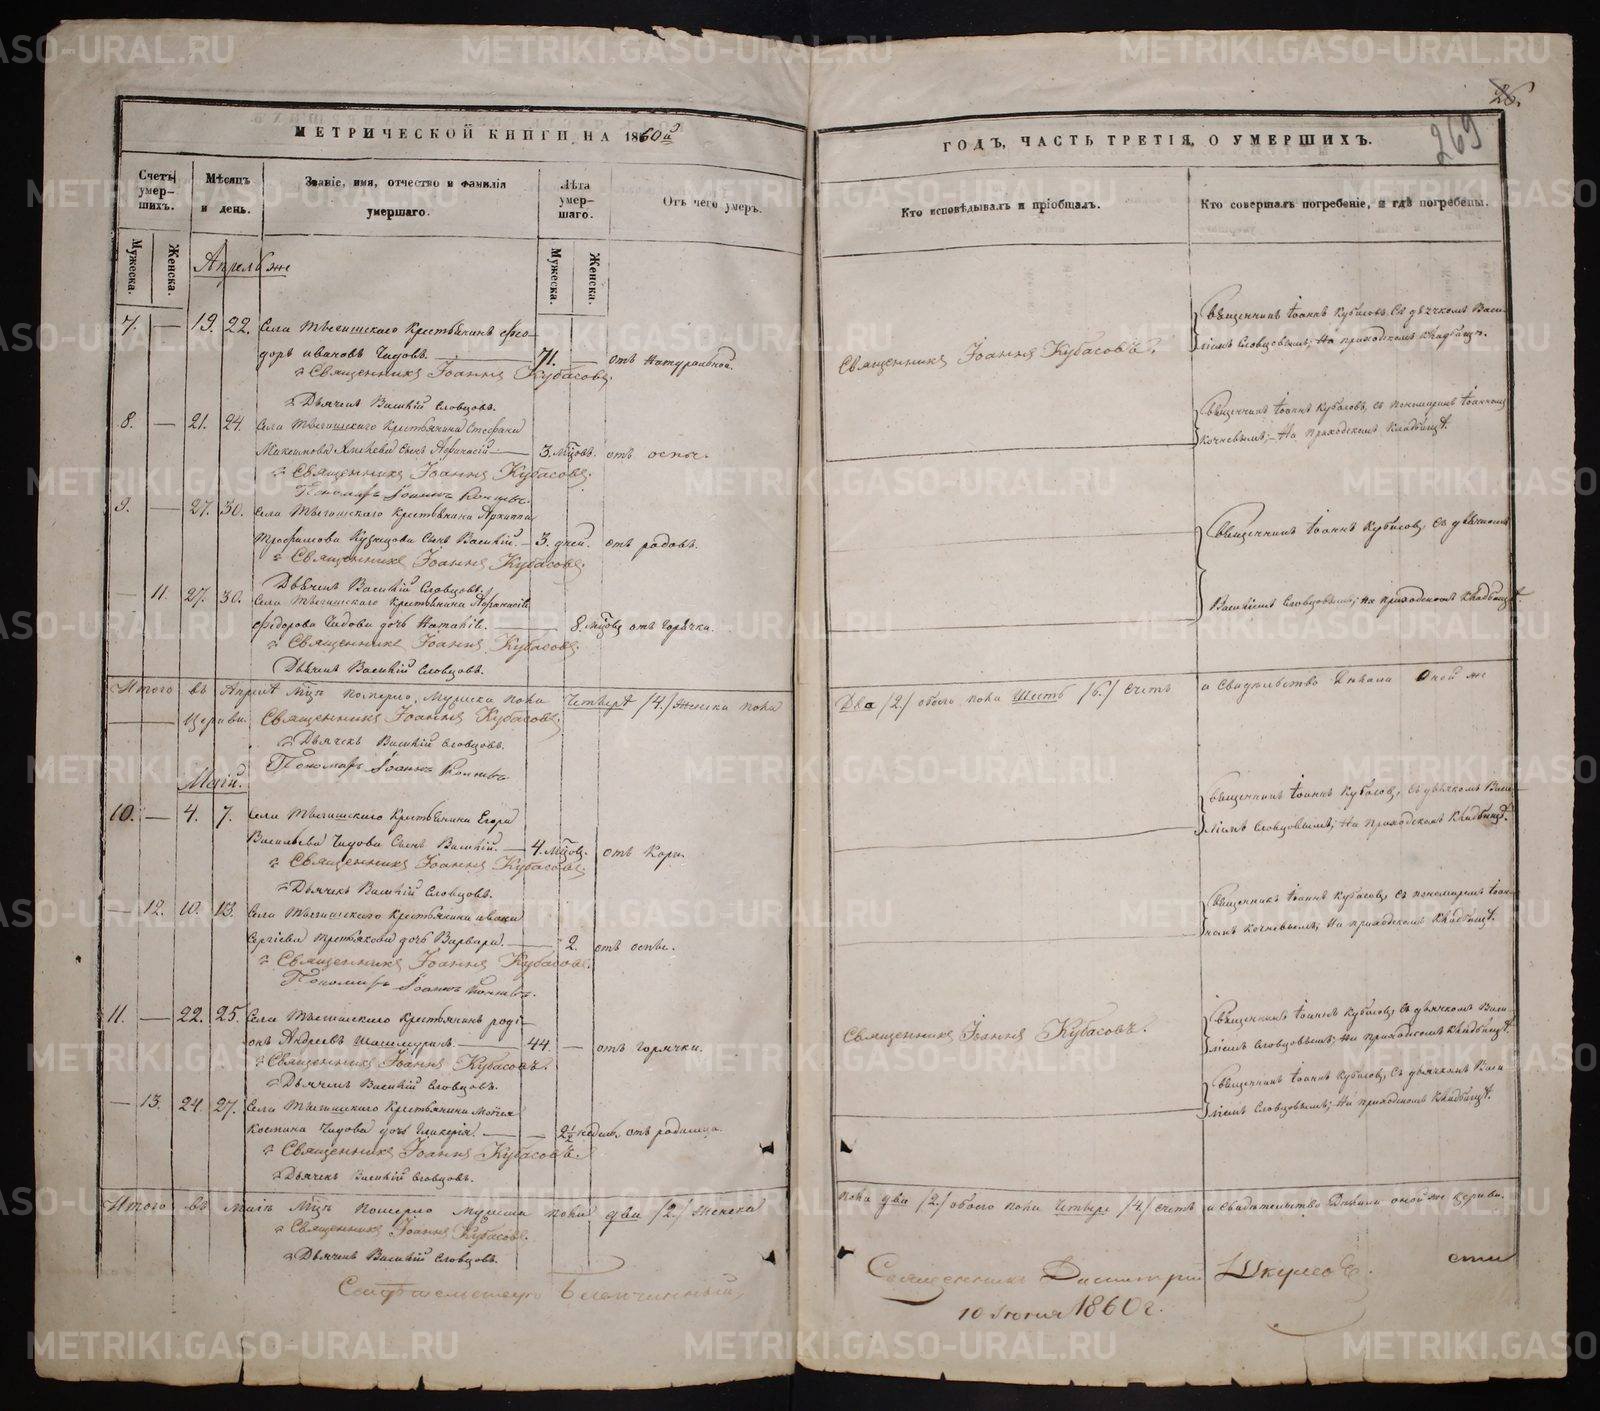 26.
269
МЕТРИЧЕСКОЙ КНИГИ НА 1860й
Счетъ умер-шихъ.
Мѣсяцъ и день.
Званіе, имя, отчество и фамилія умершаго.
Лѣта умер-шаго.
Отъ чего умеръ.
Мужеска.
Женска.
Мужеска.
Женска.
Апрель же
7. — 19. 22. Села Крестьянинъ Фео-
доръ Ивановъ Чидовъ. 71. — отъ Натуральной.
Священникъ Іоаннъ Кубасовъ.
Дьячекъ Василій Словцовъ.
8. — 21. 24. Села Крестьянина Стефана
Максимова сынъ Афанасій — 3. мѣцовъ. отъ оспы.
Священникъ Іоаннъ Кубасовъ.
Пономарь Іоаннъ Кочневъ.
9. — 27. 30. Села Крестьянина Архиппа
Трофимова Кузнецова Сынъ Василій. — 3. дней. отъ родовъ.
Священникъ Іоаннъ Кубасовъ.
Дьячекъ Василій Словцовъ.
— 11. 27. 30. Села Крестьянина Афанасія
Федорова Чидова дочь Наталія. — 8. мѣцовъ отъ горячки.
Священникъ Іоаннъ Кубасовъ.
Дьячекъ Василій Словцовъ.
Итого въ Априлѣ мцѣ померло, Мужеска пола Четверо /4./ Женска пола
церкви. Священникъ Іоаннъ Кубасовъ.
Дьячекъ Василій Словцовъ.
Пономарь Іоаннъ Кочневъ
Маій.
10. — 4. 7. Села Крестьянина Егора
Васильева Чидова Сынъ Василій. — 4. мѣцовъ. отъ Кори.
Священникъ Іоаннъ Кубасовъ.
Дьячекъ Василій Словцовъ.
— 12. 10. 13. Села Крестьянина Ивана
Сергіева Третьякова дочь Варвара. — 2. отъ оспы.
Священникъ Іоаннъ Кубасовъ.
Пономарь Іоаннъ Кочневъ.
11. — 22. 25. Села Крестьянинъ Роді-
онъ Андреевъ — 44. — отъ горячки.
Священникъ Іоаннъ Кубасовъ.
Дьячекъ Василій Словцовъ.
— 13. 24. 27. Села Крестьянина Моисея
Костина Чидова дочь Гликерія. — 2½ недѣль отъ родимца.
Священникъ Іоаннъ Кубасовъ.
Дьячекъ Василій Словцовъ.
Итого въ маіѣ мцѣ померло мужска пола два /2./ женска
Священникъ Іоаннъ Кубасовъ.
Дьячекъ Василій Словцовъ.
Благочинный,
ГОДЪ, ЧАСТЬ ТРЕТІЯ, О УМЕРШИХЪ.
Кто исповѣдывалъ и пріобщалъ.
Кто совершалъ погребеніе, и гдѣ погребены.
Священникъ Іоаннъ Кубасовъ.
Священникъ Іоаннъ Кубасовъ, Съ дьячкомъ Васи-
ліемъ Словцовымъ; На приходскомъ Кладбищѣ.
Священникъ Іоаннъ Кубасовъ, съ пономаремъ Іоанномъ
Кочневымъ; — На приходскомъ Кладбищѣ.
Священникъ Іоаннъ Кубасовъ, Съ дьячкомъ
Василіемъ Словцовымъ; На приходскомъ Кладбищѣ
Два /2./ обоего пола Шесть /6./ счетъ и Свидѣтельство оной же
Священникъ Іоаннъ Кубасовъ, Съ дьячкомъ Васи-
ліемъ Словцовымъ; На приходскомъ Кладбищѣ.
Священникъ Іоаннъ Кубасовъ, Съ пономаремъ Іоан-
номъ Кочневымъ; На приходскомъ Кладбищѣ.
Священникъ Іоаннъ Кубасовъ.
Священникъ Іоаннъ Кубасовъ, Съ дьячкомъ Васи-
ліемъ Словцовымъ; На приходскомъ Кладбищѣ.
Священникъ Іоаннъ Кубасовъ, Съ дьячкомъ Васи-
ліемъ Словцовымъ; На приходскомъ Кладбищѣ.
пола два /2./ обоего пола Четверо /4./ счетъ и Свидѣтельство оной же церкви.
Священникъ Димитрій
10 Іюня 1860 г.
METRIKI.GASO-URAL.RU